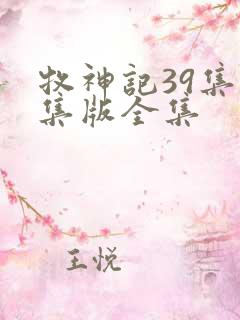 牧神记39集
集版全集
王悦